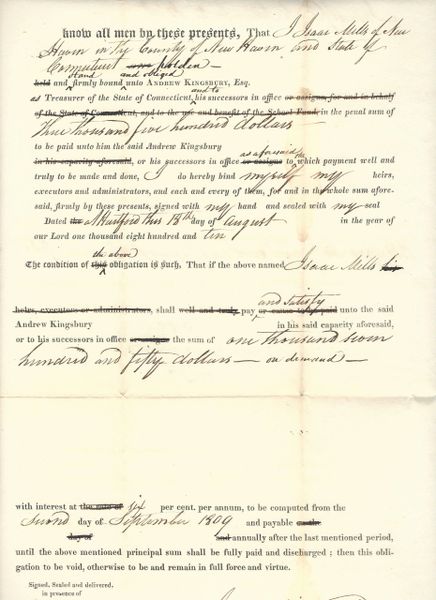 know all men by these presents, That I Isaac Mills of New
Haven in the County of New Haven and State of
Connecticut are holden
stand and obliged
held and firmly bound unto ANDREW KINGSBURY, Esq.
and to
as Treasurer of the State of Connecticut, his successors in office or assigns, for and in behalf
of the State of Connecticut, and to the use and benefit of the School Fund, in the penal sum of
three thousand five hundred dollars
to be paid unto him the said Andrew Kingsbury
as aforesaid the
in his capacity aforesaid, or his successors in office or assigns to which payment well and
truly to be made and done, I do hereby bind myself my heirs,
executors and administrators, and each and every of them, for and in the whole sum afore-
said, firmly by these presents, signed with my hand and sealed with my seal
Dated the at Hartford this 18th day of august in the year of
our Lord one thousand eight hundred and ten
the above
The condition of this obligation is such, That if the above named Isaac Mills his
heirs, executors or administrators, shall well and truly pay or cause to be paid unto the said
and satisfy
Andrew Kingsbury in his said capacity aforesaid,
or to his successors in office or assigns the sum of one thousand seven
hundred and fifty dollars — on demand —
with interest at the rate of six per cent. per annum, to be computed from the
second day of September 1809 and payable on the
day of and annually after the last mentioned period,
until the above mentioned principal sum shall be fully paid and discharged; then this obli-
gation to be void, otherwise to be and remain in full force and virtue.
Signed, Sealed and delivered.
in presence of